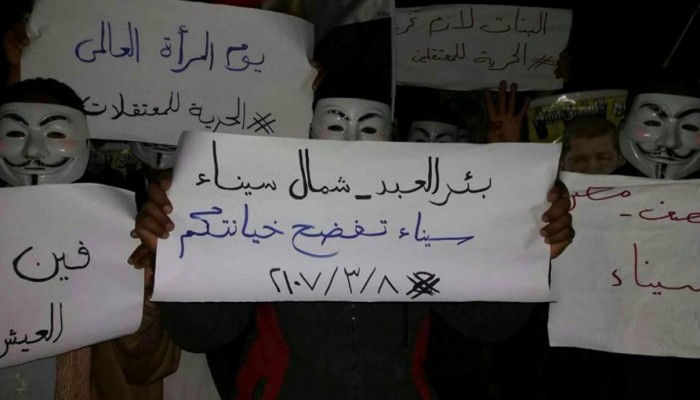 يوم المرأة العالمى
#الحرية للمعتقلات
البنات لازم
#الحرية للمعتقلين
بئر العبد - شمال سيناء
سيناء تفضح خيانتكم
٢١٠٧/٣/٨
فين
العيش
سيناء